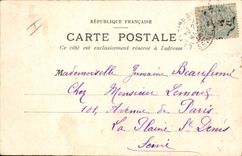 RÉPUBLIQUE FRANÇAISE
CARTE POSTALE
Ce côté est exclusivement réservé à l'adresse
Mademoiselle Germaine Beaufumé
Chez Monsieur Lemoux
101, Avenue de Paris
La Plaine St Denis
Seine